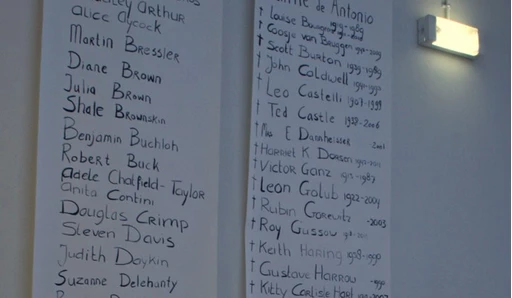 Arthur
Alice Aycock
Martin Bressler
Diane Brown
Julia Brown
Shale Brownskin
Benjamin Buchloh
Robert Buck
Adele Chatfield-Taylor
Anita Contini
Douglas Crimp
Steven Davis
Judith Daykin
Suzanne Delehanty
de Antonio
† Louise Bourgeois
† Coosje van Bruggen
† Scott Burton 1939-1989
† John Caldwell
† Leo Castelli 1907-1999
† Ted Castle 1938-2006
† Mrs. E Dannheisser
† Harriet K Dorsen
† Victor Ganz 1913-1987
† Leon Golub 1922-2004
† Rubin Gorewitz
† Roy Gussow
† Keith Haring
† Gustave Harrow
† Kitty Carlisle Hart